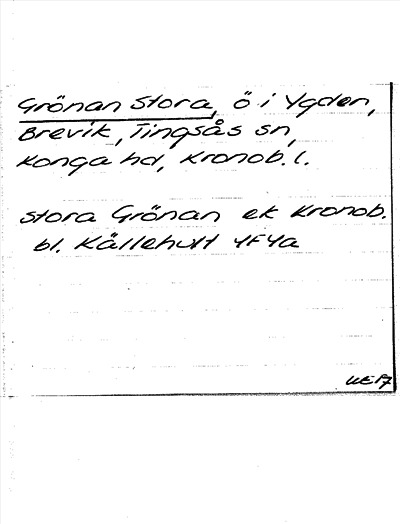 Grönan Stora, ö i Ygden,
Brevik, Tingsås sn,
Konga hd, Kronob. l.
Stora Grönan ek Kronob.
bl. Källehult 4F4a